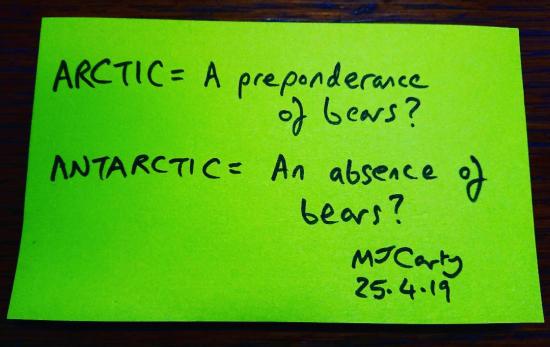 ARCTIC = A preponderance
of bears?
ANTARCTIC = An absence of
bears?
MJCarty
25.4.19